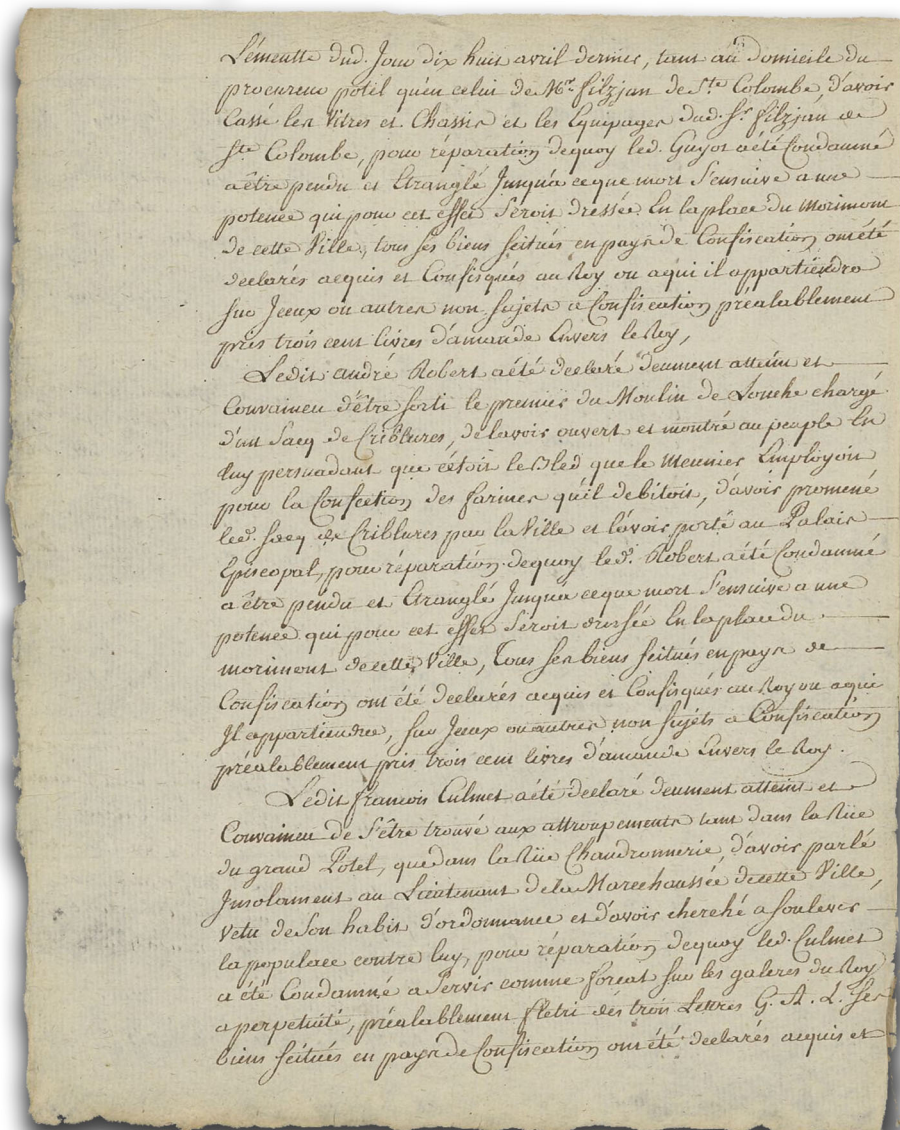 L'émeutte dud. Jour dix huit avril dernier, tant au domicile du
procureur potel qu'en celui de Mr. filzjan de Ste Colombe, d'avoir
Cassé les Vitres et Chassis et les Equipages dud. Sr. filzjan de
Ste Colombe, pour réparation dequoy led. Guyot a été Condamné
a être pendu et Etranglé Jusqu'a ceque mort s'ensuive a une
potence qui pour cet effet seroit dressée En la place du morimont
de cette Ville, tous ses biens scitués en pays de Confiscation ont été
declarés acquis et Confisqués au Roy ou a qui il appartiendra
sur Iceux ou autres non sujets a Confiscation préalablement
pris trois cent livres d'amande Envers le Roy,
Ledit andré Robert a été declaré deument atteint et
Convaincu d'être sorti le premier du Moulin de Louche chargé
d'un Sacq de Criblures, de lavoir ouvert et montré au peuple En
luy persuadant que c'étoit le Bled que le meunier Employoit
pour la Confection des farines qu'il debitoit, d'avoir promené
led. sacq de Criblures par la Ville et l'avoir porté au Palais
Episcopal, pour réparation dequoy led. Robert a été Condamné
a être pendu et Etranglé Jusqu'a ceque mort s'ensuive a une
potence qui pour cet effet seroit dressée En la place du
morimont de cette Ville, Tous ses biens scitués en pays de
Confiscation ont été declarés acquis et Confisqués au Roy ou a qui
Il appartiendra, sur Iceux ou autres non sujets a Confiscation
préalablement pris trois cent livres d'amande Envers le Roy.
Ledit francois Culmet a été declaré deument atteint et
Convaincu de s'être trouvé aux attroupements tant dans la Rüe
du grand Potet, que dans la Rüe Chaudronnerie, d'avoir parlé
Insolament au Lieutenant de la Marechaussée de cette Ville,
vetu de son habit d'ordonnance et d'avoir cherché a soulever
la populace contre luy, pour réparation dequoy led. Culmet
a été Condamné a servir comme forcat sur les galeres du Roy
a perpetuité, préalablement flétri des trois Lettres G. A. L. ses
biens scitués en pays de Confiscation ont été declarés acquis et